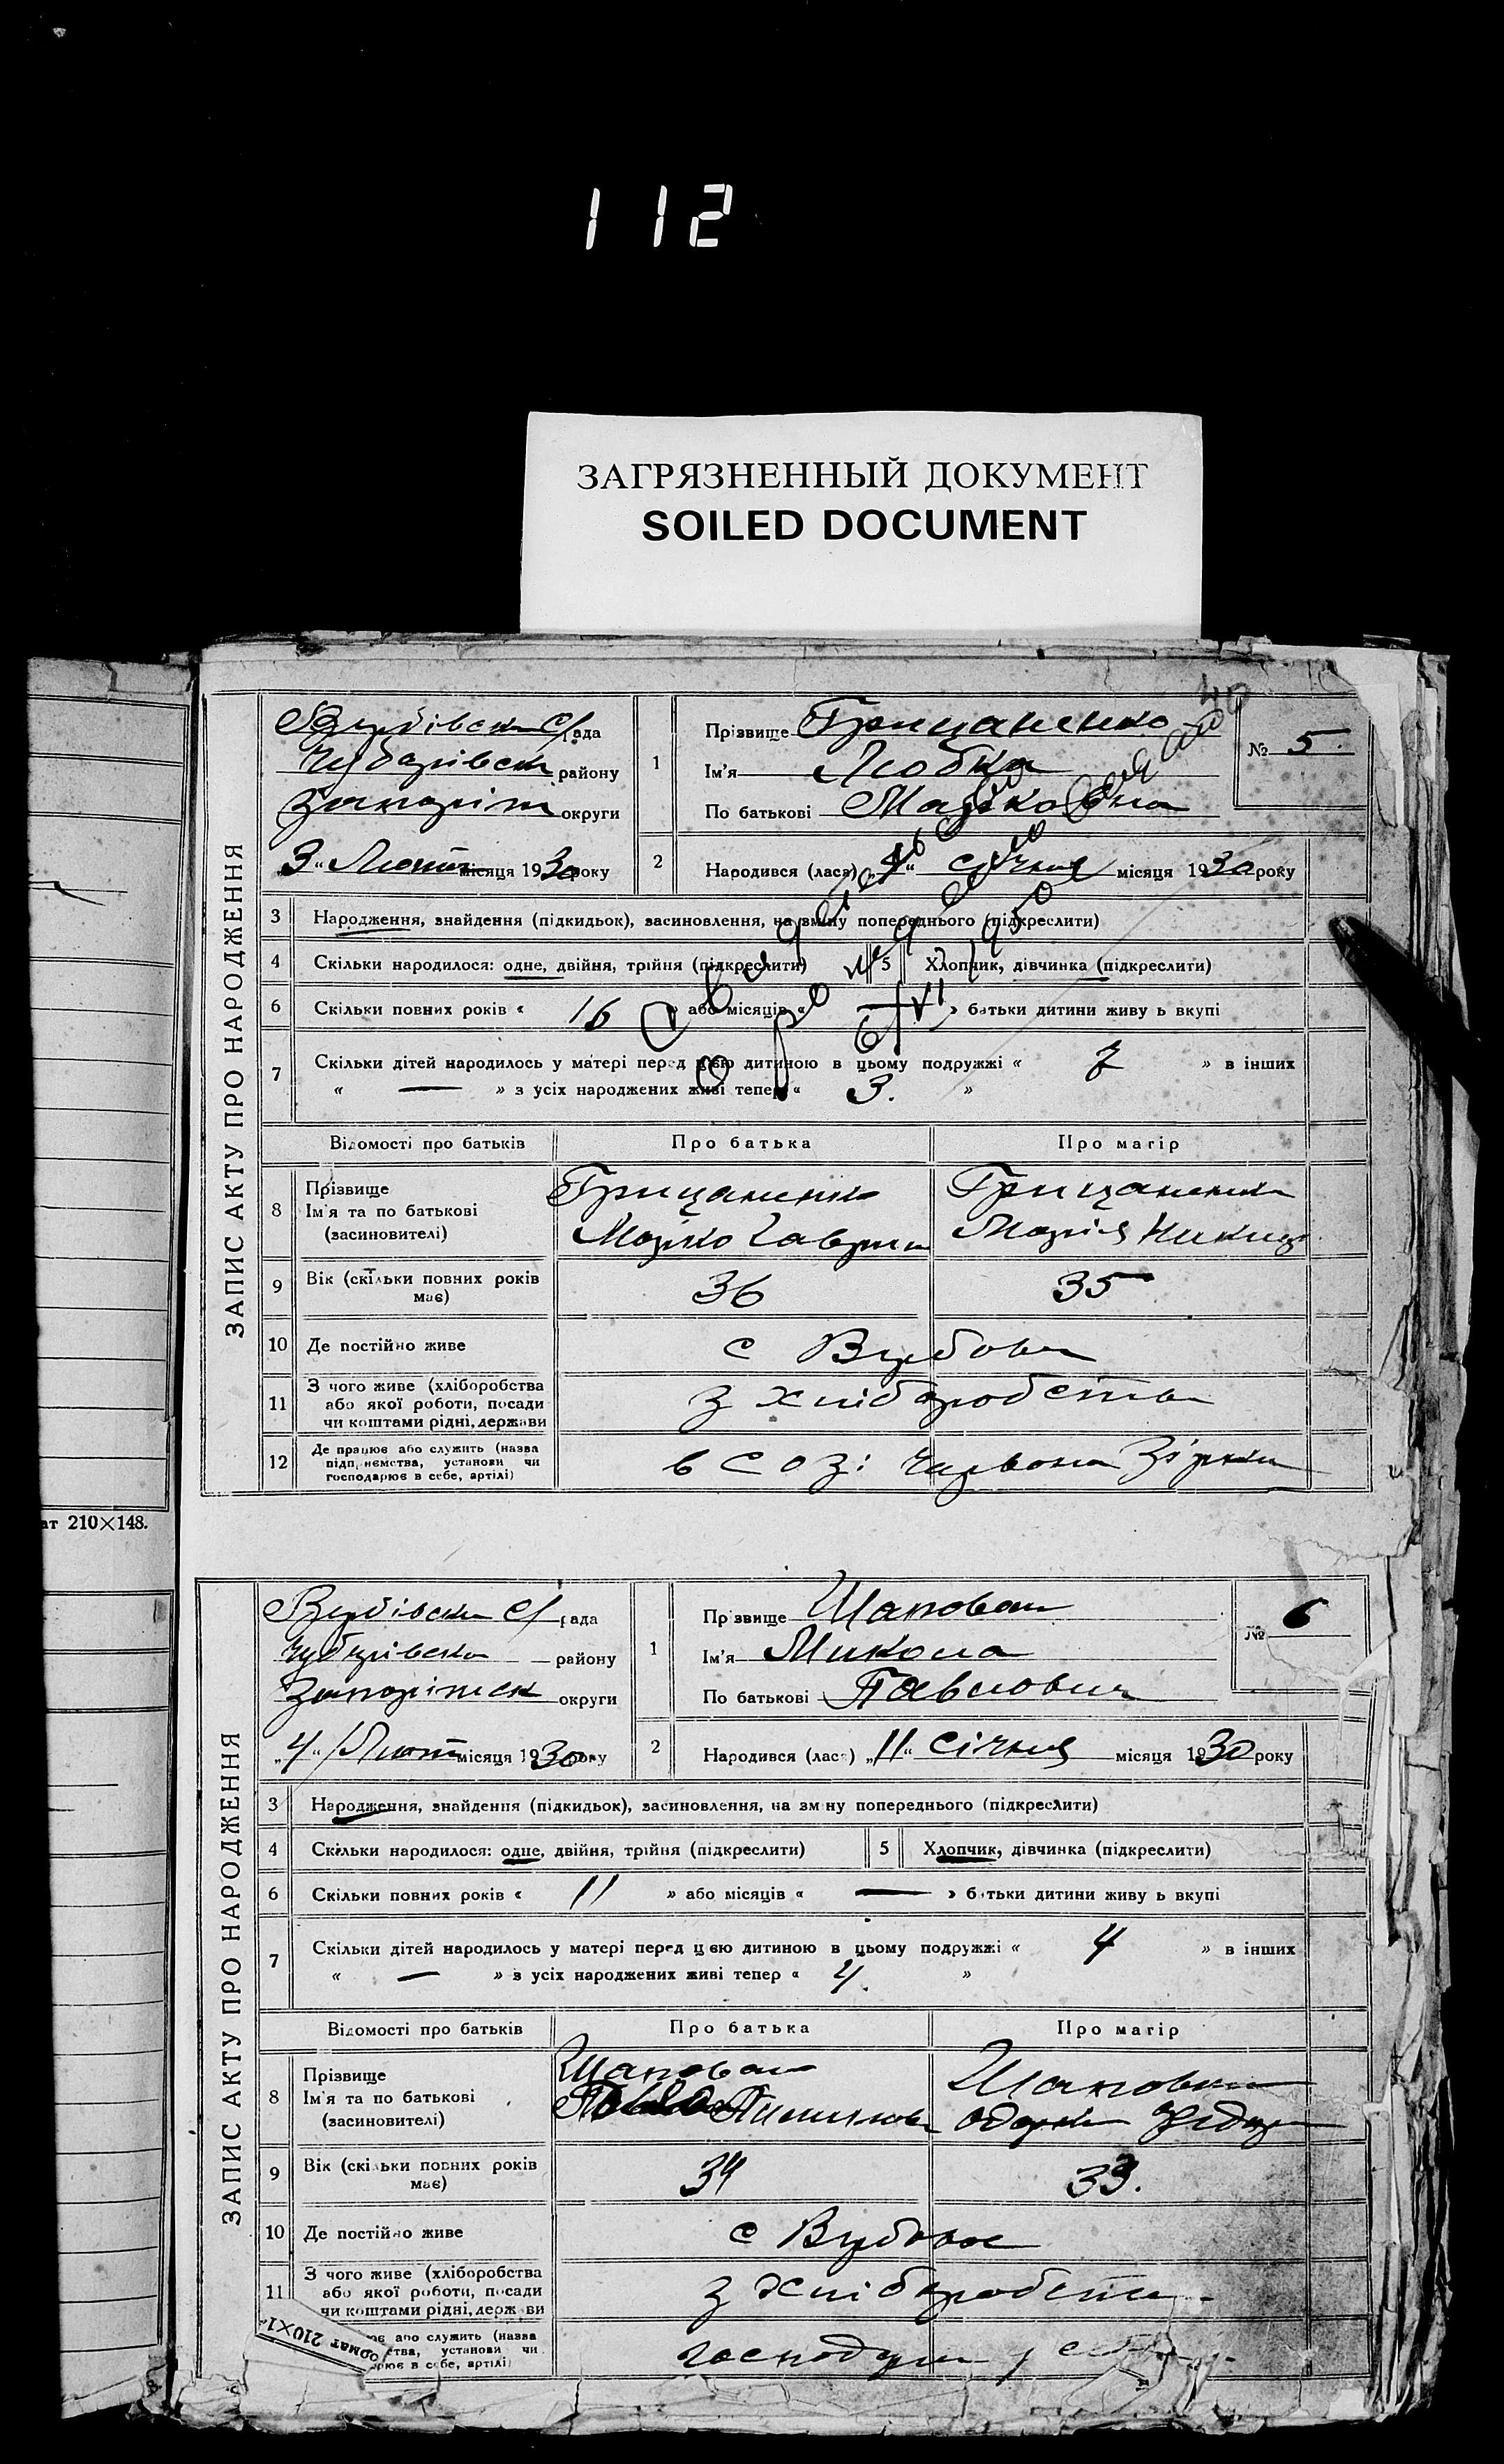 112
ЗАГРЯЗНЕННЫЙ ДОКУМЕНТ
SOILED DOCUMENT
ат 210×148.
ЗАПИС АКТУ ПРО НАРОДЖЕННЯ
Вербівськ с/рада
Чубарівськ району
Запоріж округи
„3“ Лютн місяця 1930 року
1
Прізвище Грицаненко
Ім'я Любка
По батькові Марковна
№ 5.
2
Народився (лася) січня місяця 1930 року
3 Народження, знайдення (підкидьок), засиновлення, на зміну попереднього (підкреслити)
4 Скільки народилося: одне, двійня, трійня (підкреслити) 5 Хлопчик, дівчинка (підкреслити)
6 Скільки повних років « 16 » або місяців « — » батьки дитини живуть вкупі
7 Скільки дітей народилось у матері перед цією дитиною в цьому подружжі « 7 » в інших
« — » з усіх народжених живі тепер « 3. »
Відомості про батьків Про батька Про матір
8 Прізвище
Ім'я та по батькові
(засиновителі)
Грицаненк
Марко Гаврил
Грицаненк
Марія Никиф
9 Вік (скільки повних років має) 36 35
10 Де постійно живе с Вербове
11 З чого живе (хліборобства
або якої роботи, посади
чи коштами рідні, держави
з хліборобства
12 Де працює або служить (назва
підприємства, установи чи
господарює в себе, артілі)
в созі Червона Зірка
ЗАПИС АКТУ ПРО НАРОДЖЕННЯ
Вербівськ с/рада
Чубарівськ району
Запоріжськ округи
„4“ Лютн місяця 1930 року
1
Прізвище Шаповал
Ім'я Микола
По батькові Павлович
№ 6
2
Народився (лася) „11“ січня місяця 1930 року
3 Народження, знайдення (підкидьок), засиновлення, на зміну попереднього (підкреслити)
4 Скільки народилося: одне, двійня, трійня (підкреслити) 5 Хлопчик, дівчинка (підкреслити)
6 Скільки повних років « 11 » або місяців « — » батьки дитини живуть вкупі
7 Скільки дітей народилось у матері перед цією дитиною в цьому подружжі « 4 » в інших
« — » з усіх народжених живі тепер « 4. »
Відомості про батьків Про батька Про матір
8 Прізвище
Ім'я та по батькові
(засиновителі)
Шаповал
Шаповал
Одарка Федор
9 Вік (скільки повних років має) 34 33.
10 Де постійно живе с Вербове
11 З чого живе (хліборобства
або якої роботи, посади
чи коштами рідні, держави
з хліборобств
ормат 210×1
служить (назва
установи чи
в себе, артілі)
господарш у себе